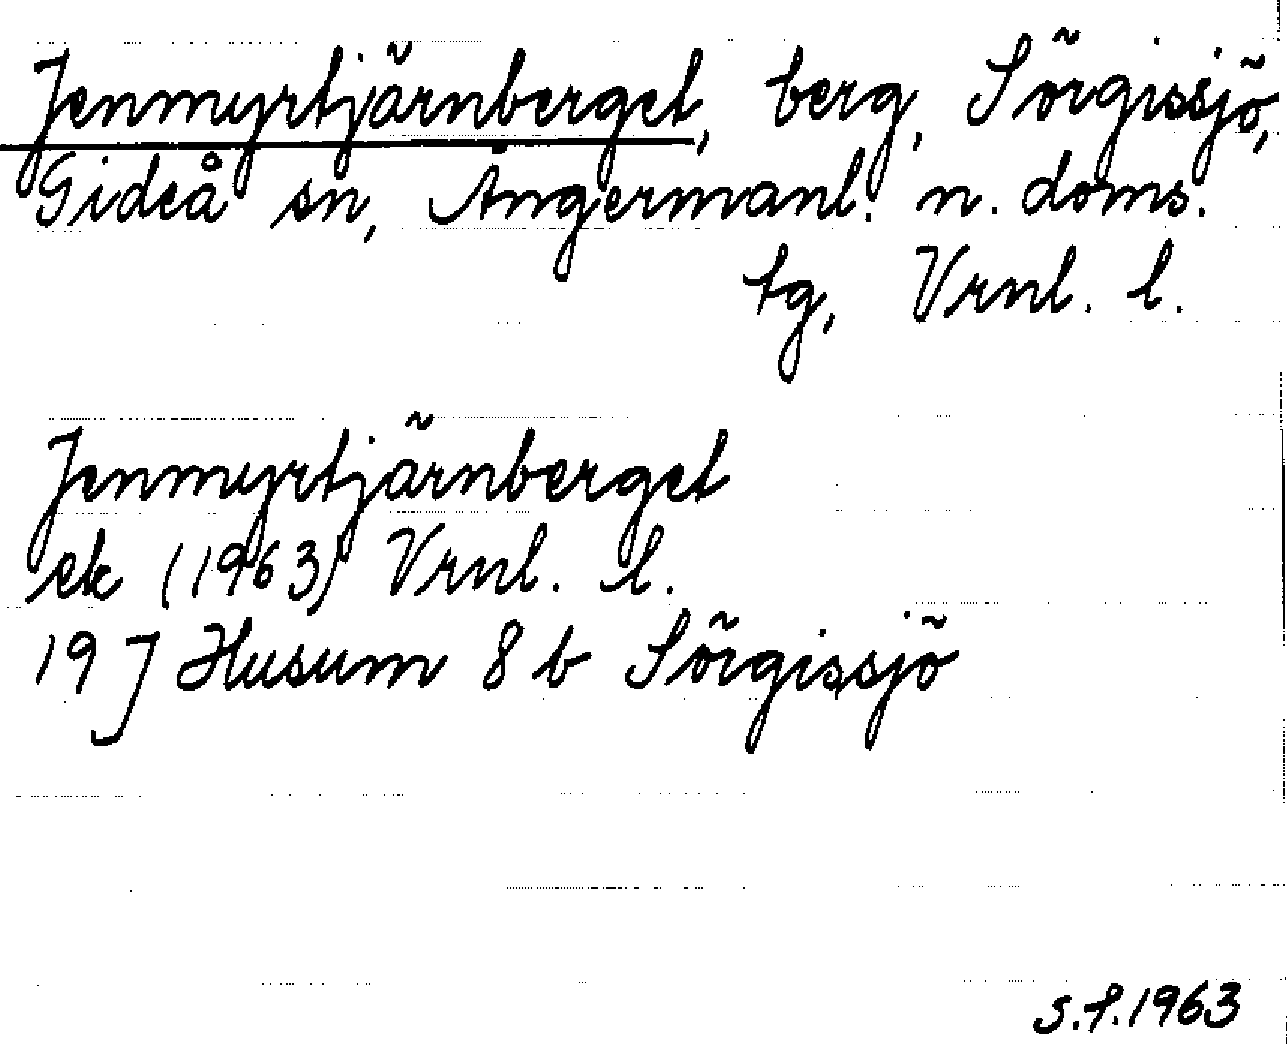 Jenmyrtjärnberget, berg, Sörgissjö,
Gideå sn, Ångermanl. n. doms.
tg, Vrnl. l.
Jenmyrtjärnberget
ek (1963) Vrnl. l.
19 J Husum 8 b Sörgissjö
S.f.1963